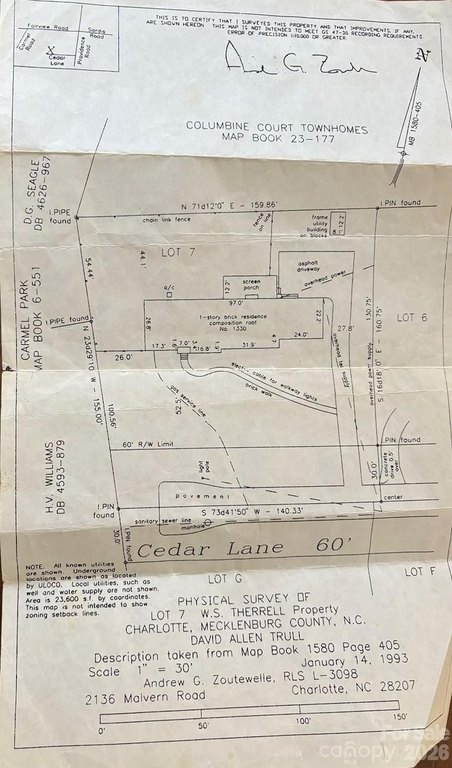 Fairview Road
Sardis
Road
Carmel
Road
X
Cedar
Lane
Providence
Road
THIS IS TO CERTIFY THAT I SURVEYED THIS PROPERTY AND THAT IMPROVEMENTS, IF ANY,
ARE SHOWN HEREON. THIS MAP IS NOT INTENDED TO MEET GS 47-30 RECORDING REQUIREMENTS
ERROR OF PRECISION 1:10,000 OR GREATER.
N
MB 1580-405
COLUMBINE COURT TOWNHOMES
MAP BOOK 23-177
D.G. SEAGLE
DB 4626-967
I.PIPE
found
N 71d12'0" E - 159.86'
I.PIN found
chain link fence
fence
on line
frame
utility
building
on blocks
12.2'
LOT 7
44.1'
54.44'
a/c
screen
porch
12.2'
asphalt
driveway
overhead power
CARMEL PARK
MAP BOOK 6-551
97.0'
130.75'
S 16d18'0" E - 160.75'
LOT 6
1-story brick residence
composition roof
No. 1330
26.8'
22.2'
27.8'
I.PIPE
found
24.0'
4.7
31.9'
16.8'
7.0'
17.3'
26.0'
N 23d29'10" W - 155.00'
100.56'
electric cable for walkway lights
brick walk
gas service line
52.5'
overhead power supply
60' R/W Limit
I.PIN found
H.V. WILLIAMS
DB 4593-879
light
pole
30.0'
concrete
drive 0.5'
over
pavement
center
I.PIN
found
S 73d41'50" W - 140.33'
sanitary sewer line
manhole
30.0'
PIN found
Cedar Lane 60'
NOTE. All known utilities
are shown. Underground
locations are shown as located
by ULOCO. Local utilities, such as
well and water supply are not shown.
Area is 23,600 s.f. by coordinates.
This map is not intended to show
zoning setback lines.
LOT G
LOT F
PHYSICAL SURVEY OF
LOT 7 W.S. THERRELL Property
CHARLOTTE, MECKLENBURG COUNTY, N.C.
DAVID ALLEN TRULL
Description taken from Map Book 1580 Page 405
Scale 1" = 30'
January 14, 1993
Andrew G. Zoutewelle, RLS L-3098
2136 Malvern Road
Charlotte, NC 28207
0'
50'
100'
150'
For Sale
canopy 2026
MLS